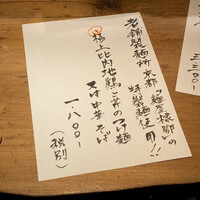 老舗製麺所京都"麺屋棣鄂"の
特製麺使用!!
極上比内地鶏と芹のつけ麺
又は中華そば
一、八〇〇 -
(税別)